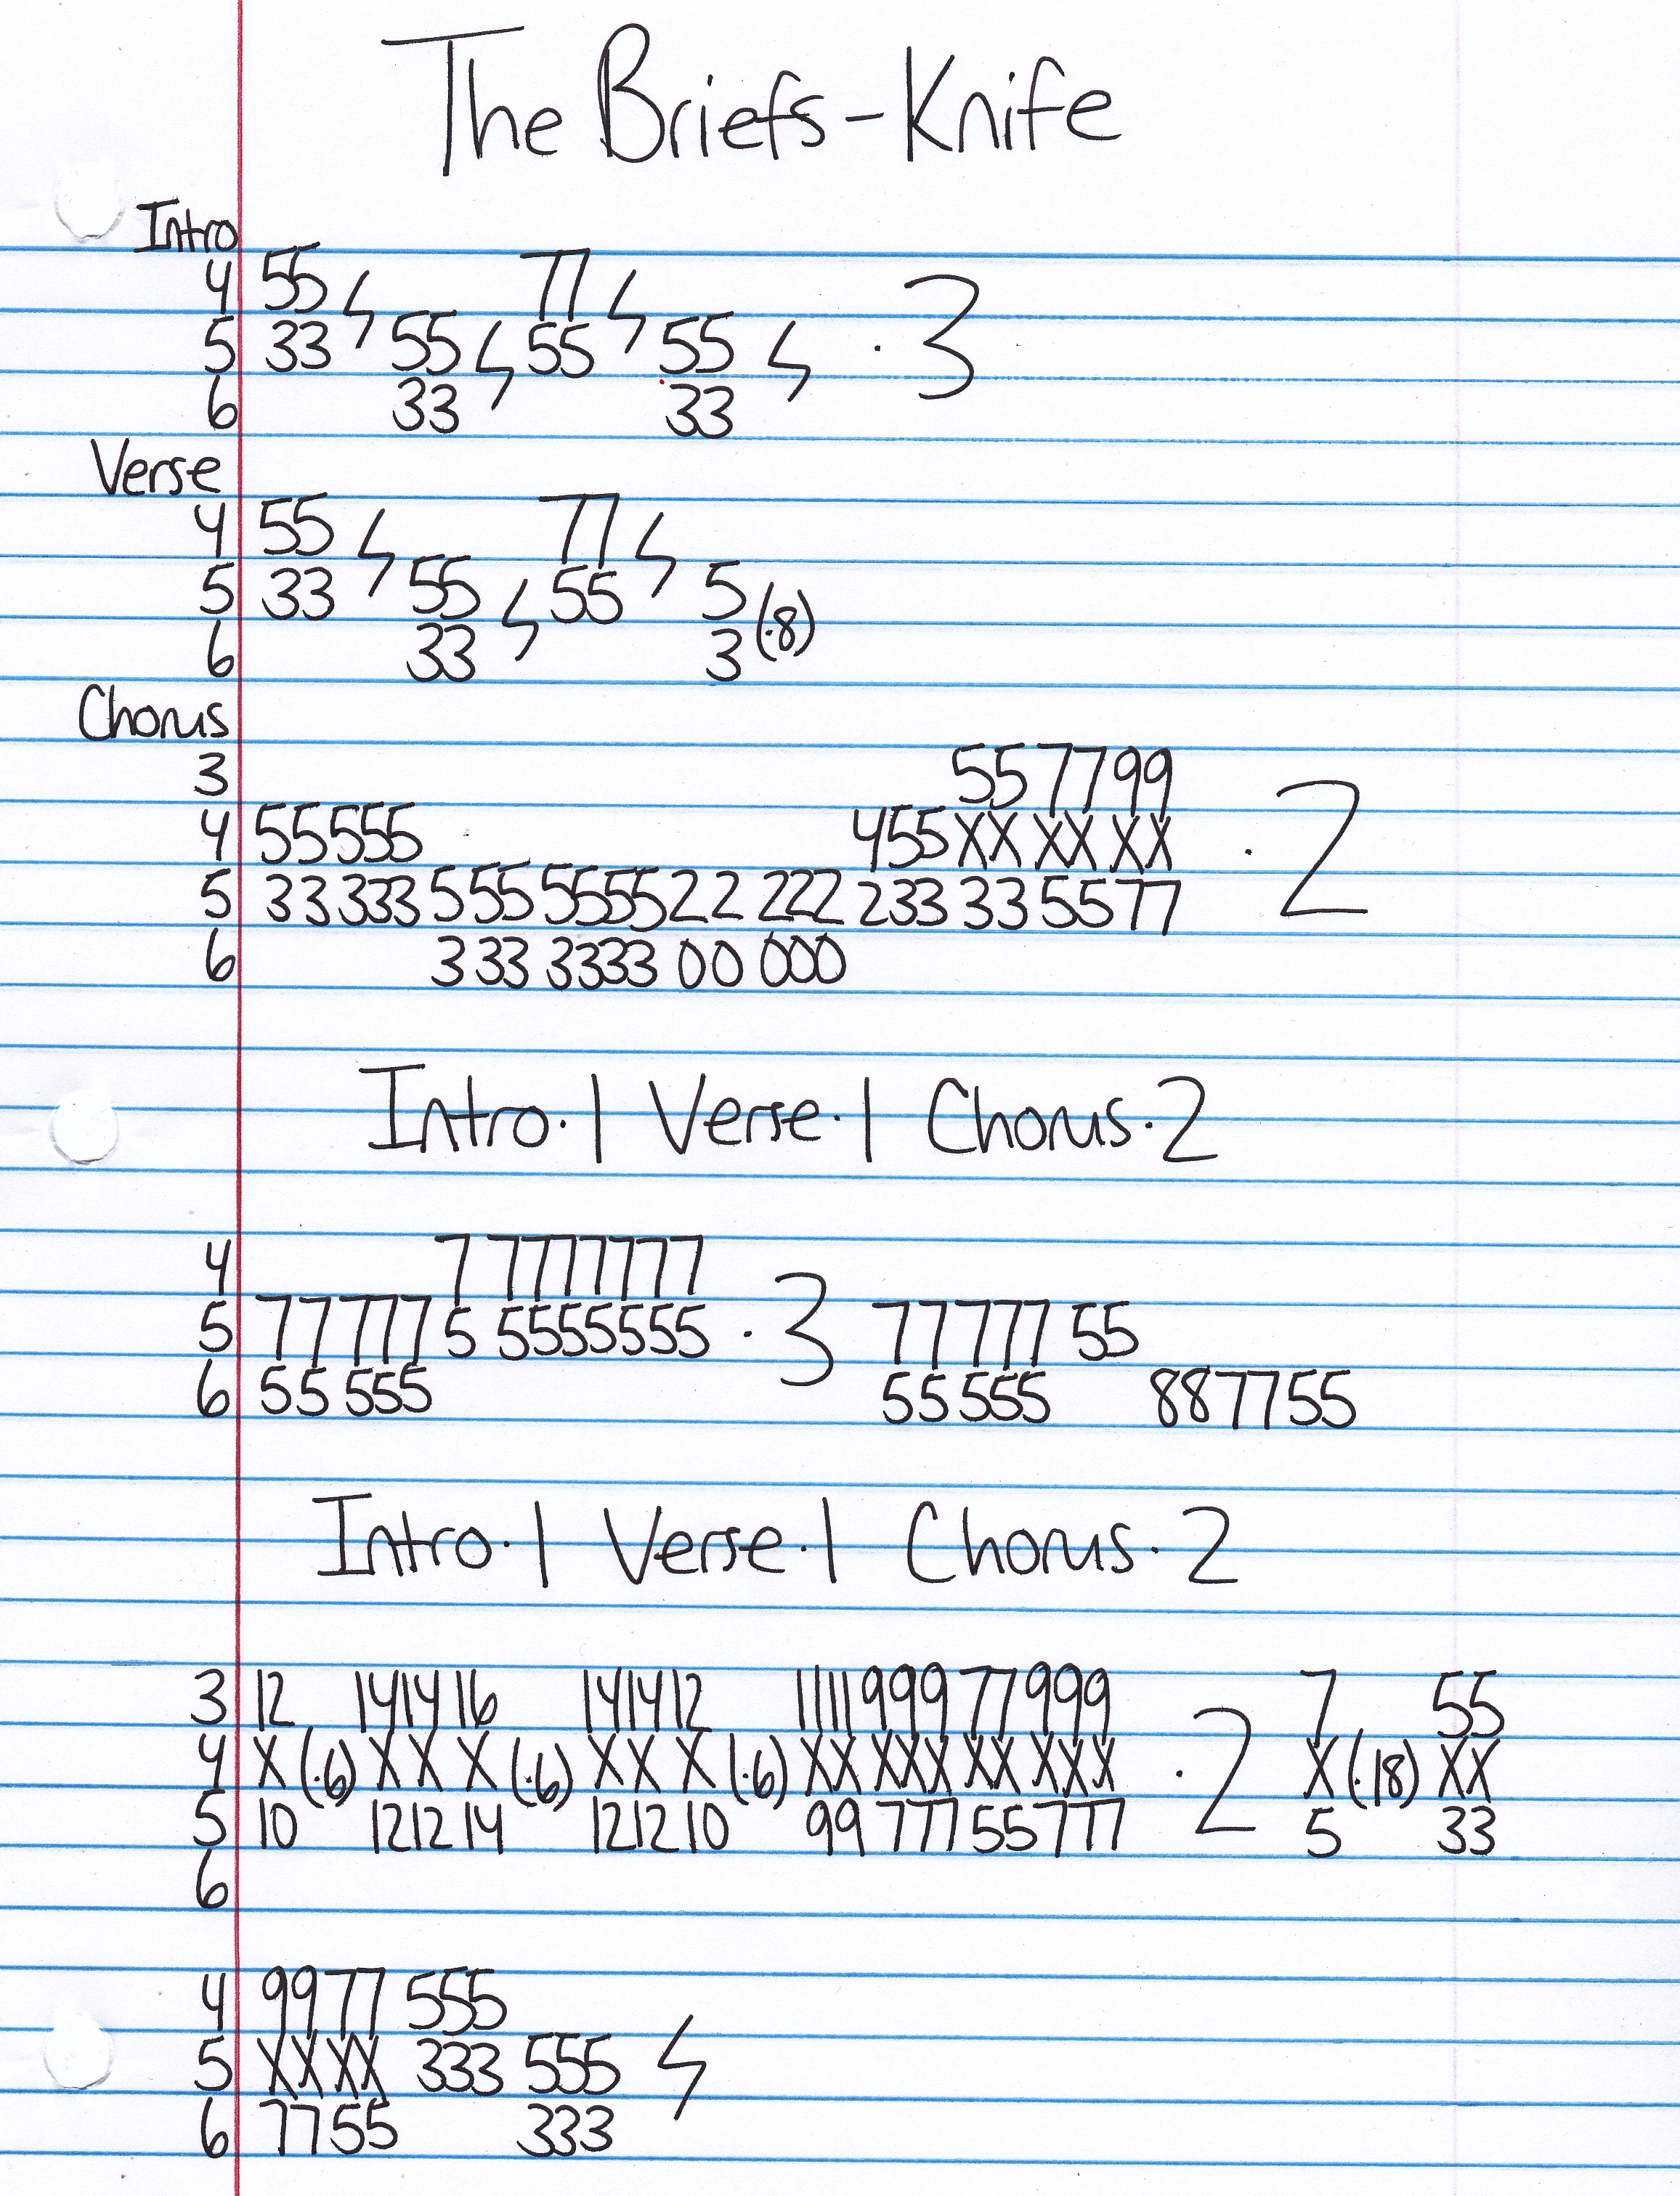 The Briefs - Knife
Intro
4 55 77
5 33 55 55 55 · 3
6 33 33
Verse
4 55 77
5 33 55 55 5 (·8)
6 33 3
Chorus
3 55 77 99
4 55 555 455 XX XX XX · 2
5 33 333 5 55 5555 22 222 233 33 55 77
6 3 33 3333 00 000
Intro·1 Verse·1 Chorus·2
4 7 7777777
5 77 777 5 5555555 · 3 77 777 55
6 55 555 55 555 88 77 55
Intro·1 Verse·1 Chorus·2
3 12 1414 16 1414 12 1111 999 77 999 7 55
4 X (·6) X X X (·6) XX X (·6) XX XXX XX XXX · 2 X (·18) XX
5 10 1212 14 1212 10 99 777 55 777 5 33
6
4 99 77 555
5 XX XX 333 555
6 77 55 333